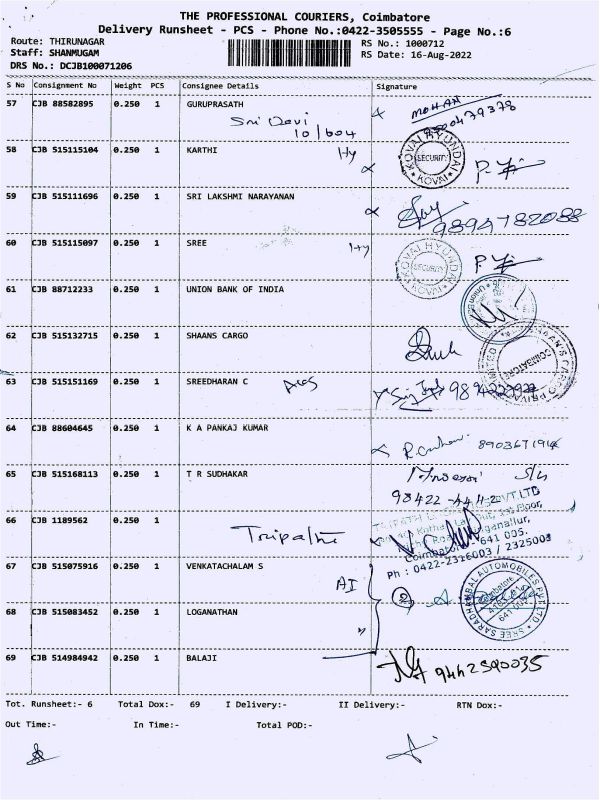 THE PROFESSIONAL COURIERS, Coimbatore
Delivery Runsheet - PCS - Phone No.:0422-3505555 - Page No.:6
Route: THIRUNAGAR
Staff: SHANMUGAM
DRS No.: DCJB100071206
RS No.: 1000712
RS Date: 16-Aug-2022
S No Consignment No Weight PCS Consignee Details Signature
57 CJB 88582895 0.250 1 GURUPRASATH MOHAN
Sri Devi
10/604
58 CJB 515115104 0.250 1 KARTHI Hy
KOVAI HYUNDAI SECURITY KOVAI
59 CJB 515111696 0.250 1 SRI LAKSHMI NARAYANAN
9894782088
60 CJB 515115097 0.250 1 SREE Hy
KOVAI HYUNDAI SECURITY KOVAI
61 CJB 88712233 0.250 1 UNION BANK OF INDIA
62 CJB 515132715 0.250 1 SHAANS CARGO
SHAAN'S CARGO PRIVATE LIMITED COIMBATORE
63 CJB 515151169 0.250 1 SREEDHARAN C
64 CJB 88604645 0.250 1 K A PANKAJ KUMAR
8903671914
65 CJB 515168113 0.250 1 T R SUDHAKAR
98422-44112
66 CJB 1189562 0.250 1
Tripathi
PVT LTD
1st Floor,
641 005.
Ph : 0422-2316003 / 2325003
67 CJB 515075916 0.250 1 VENKATACHALAM S
AI
SREE SARADHAMBAL AUTOMOBILES PVT LTD
Coimbatore
641 005
68 CJB 515083452 0.250 1 LOGANATHAN
69 CJB 514984942 0.250 1 BALAJI
9442590035
Tot. Runsheet:- 6 Total Dox:- 69 I Delivery:- II Delivery:- RTN Dox:-
Out Time:- In Time:- Total POD:-